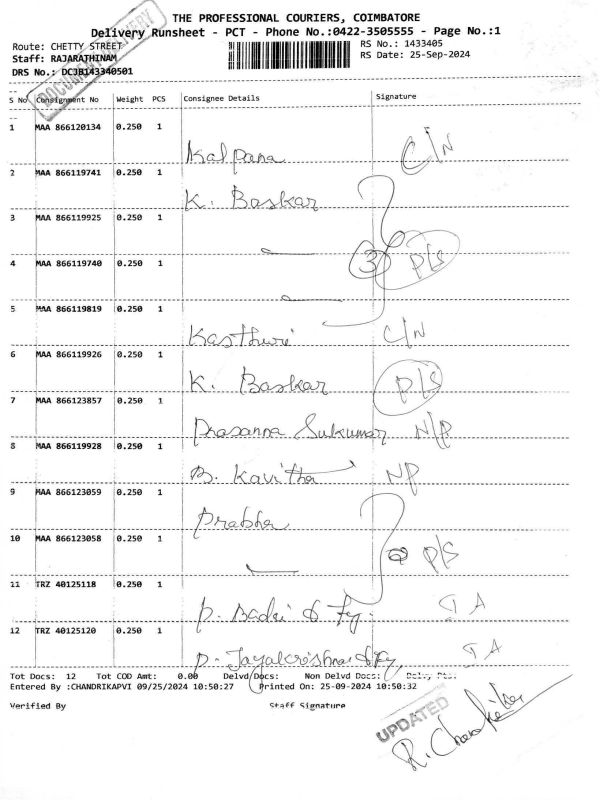 THE PROFESSIONAL COURIERS, COIMBATORE
Delivery Runsheet - PCT - Phone No.:0422-3505555 - Page No.:1
Route: CHETTY STREET RS No.: 1433405
Staff: RAJARATHINAM RS Date: 25-Sep-2024
DRS No.: DCJB143340501
DOCUMENT DELIVERY
S No Consignment No Weight PCS Consignee Details Signature
1 MAA 866120134 0.250 1
Kalpana C/N
2 MAA 866119741 0.250 1
K. Baskar
3 MAA 866119925 0.250 1
3 P/S
4 MAA 866119740 0.250 1
5 MAA 866119819 0.250 1
Kasthuri C/N
6 MAA 866119926 0.250 1
K. Baskar P/S
7 MAA 866123857 0.250 1
Prasanna Sukumar N/P
8 MAA 866119928 0.250 1
B. Kavitha NP
9 MAA 866123059 0.250 1
Prabha
10 MAA 866123058 0.250 1
P/S
11 TRZ 40125118 0.250 1
P. Badri & Fy.
12 TRZ 40125120 0.250 1
P. Jayakrishnan & Fy,
Tot Docs: 12 Tot COD Amt: 0.00 Delvd Docs: Non Delvd Docs: Delvy Pts:
Entered By :CHANDRIKAPVI 09/25/2024 10:50:27 Printed On: 25-09-2024 10:50:32
Verified By Staff Signature
UPDATED